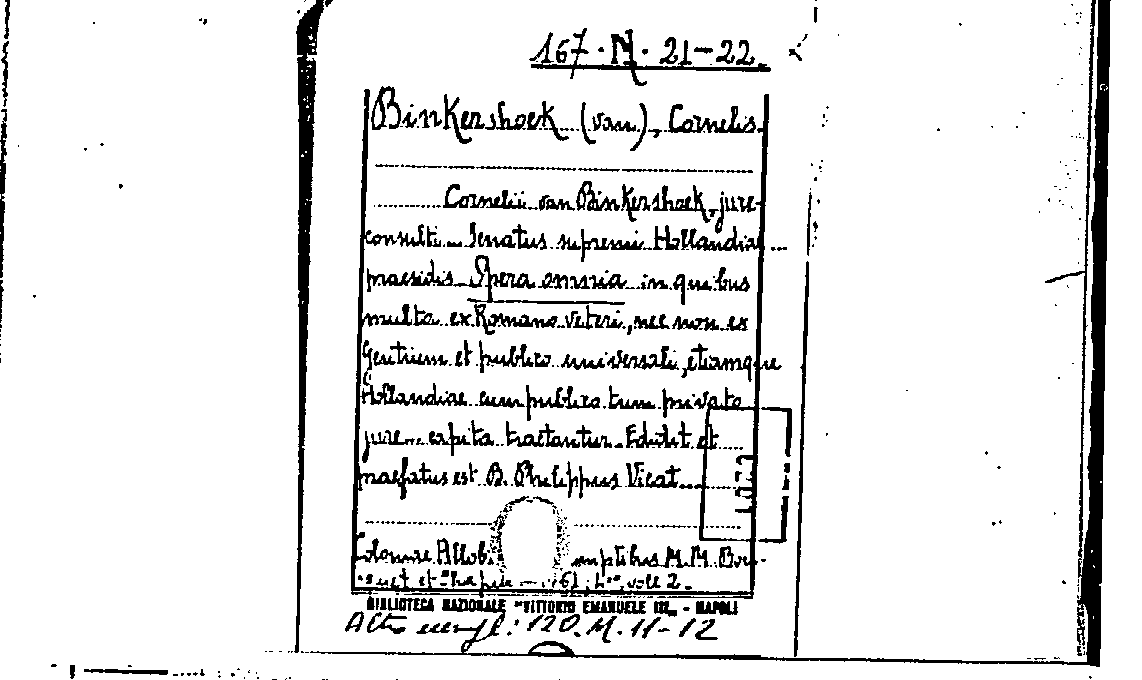 167·N·21-22.
Binkershoek (van), Cornelis.
Cornelii van Binkershoek, jure-
consulti Senatus supremi Hollandiae
praesidis Opera omnia in quibus
multa ex Romano Veteri, nec non ex
Gentium et publico universali, etiamque
Hollandiae cum publico tum privato
jure capita tractantur. Edidit et
praefatus est B. Philippus Vicat
Coloniae Allob. umptibus M.M. Bou-
et vol. 2.
BIBLIOTECA NAZIONALE "VITTORIO EMANUELE III" - NAPOLI
Altro esempl: 120.M.11-12